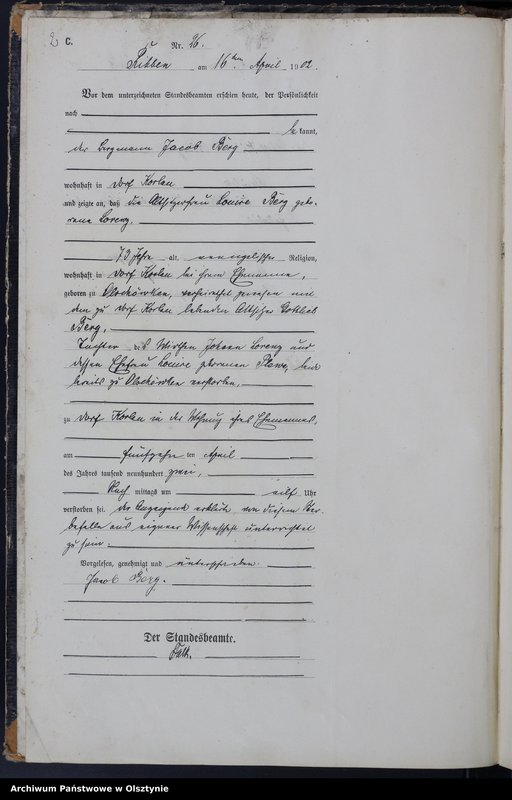 C.
Nr. 26.
Ribben am 16ten April 1902.
Vor dem unterzeichneten Standesbeamten erschien heute, der Persönlichkeit
nach
bekannt,
der Bergmann Jacob Berg
wohnhaft in Dorf Korlen
und zeigte an, daß die Altsitzerfrau Louise Berg gebo-
rene Lorenz.
73 Jahre alt, evangelischer Religion,
wohnhaft in Dorf Korlen bei ihrem Ehemanne,
geboren zu verheirathet gewesen mit
dem zu Dorf Korlen lebenden Altsitzer Gottlieb
Berg,
Tochter des Wirthen Johann Lorenz und
dessen Ehefrau Louise geborenen beide
bereits zu verstorben,
zu Dorf Korlen in der Wohnung ihres Ehemannes,
am fünfzehnten April
des Jahres tausend neunhundert zwei,
Nachmittags um eilf Uhr
verstorben sei. Der Anzeigende erklärte, von diesem Ster-
befalle aus eigener Wissenschaft unterrichtet
zu sein.
Vorgelesen, genehmigt und unterschrieben.
Jacob Berg.
Der Standesbeamte.
Archiwum Państwowe w Olsztynie